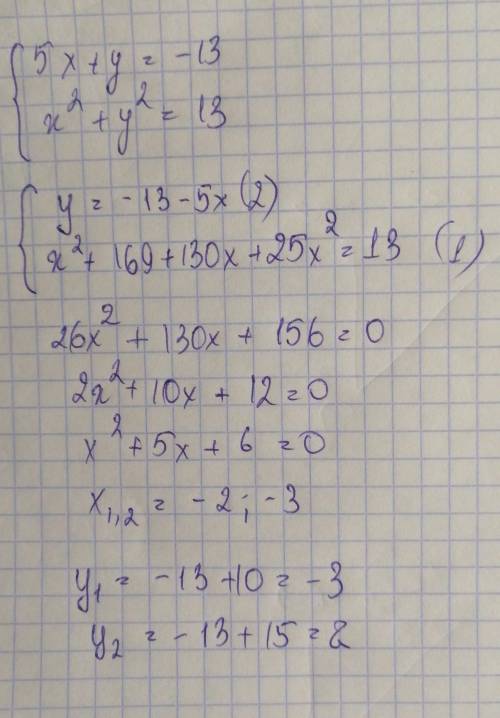 5x + y = -13
x² + y² = 13
y = -13 - 5x (2)
x² + 169 + 130x + 25x² = 13 (1)
26x² + 130x + 156 = 0
2x² + 10x + 12 = 0
x² + 5x + 6 = 0
x₁,₂ = -2; -3
y₁ = -13 + 10 = -3
y₂ = -13 + 15 = 2